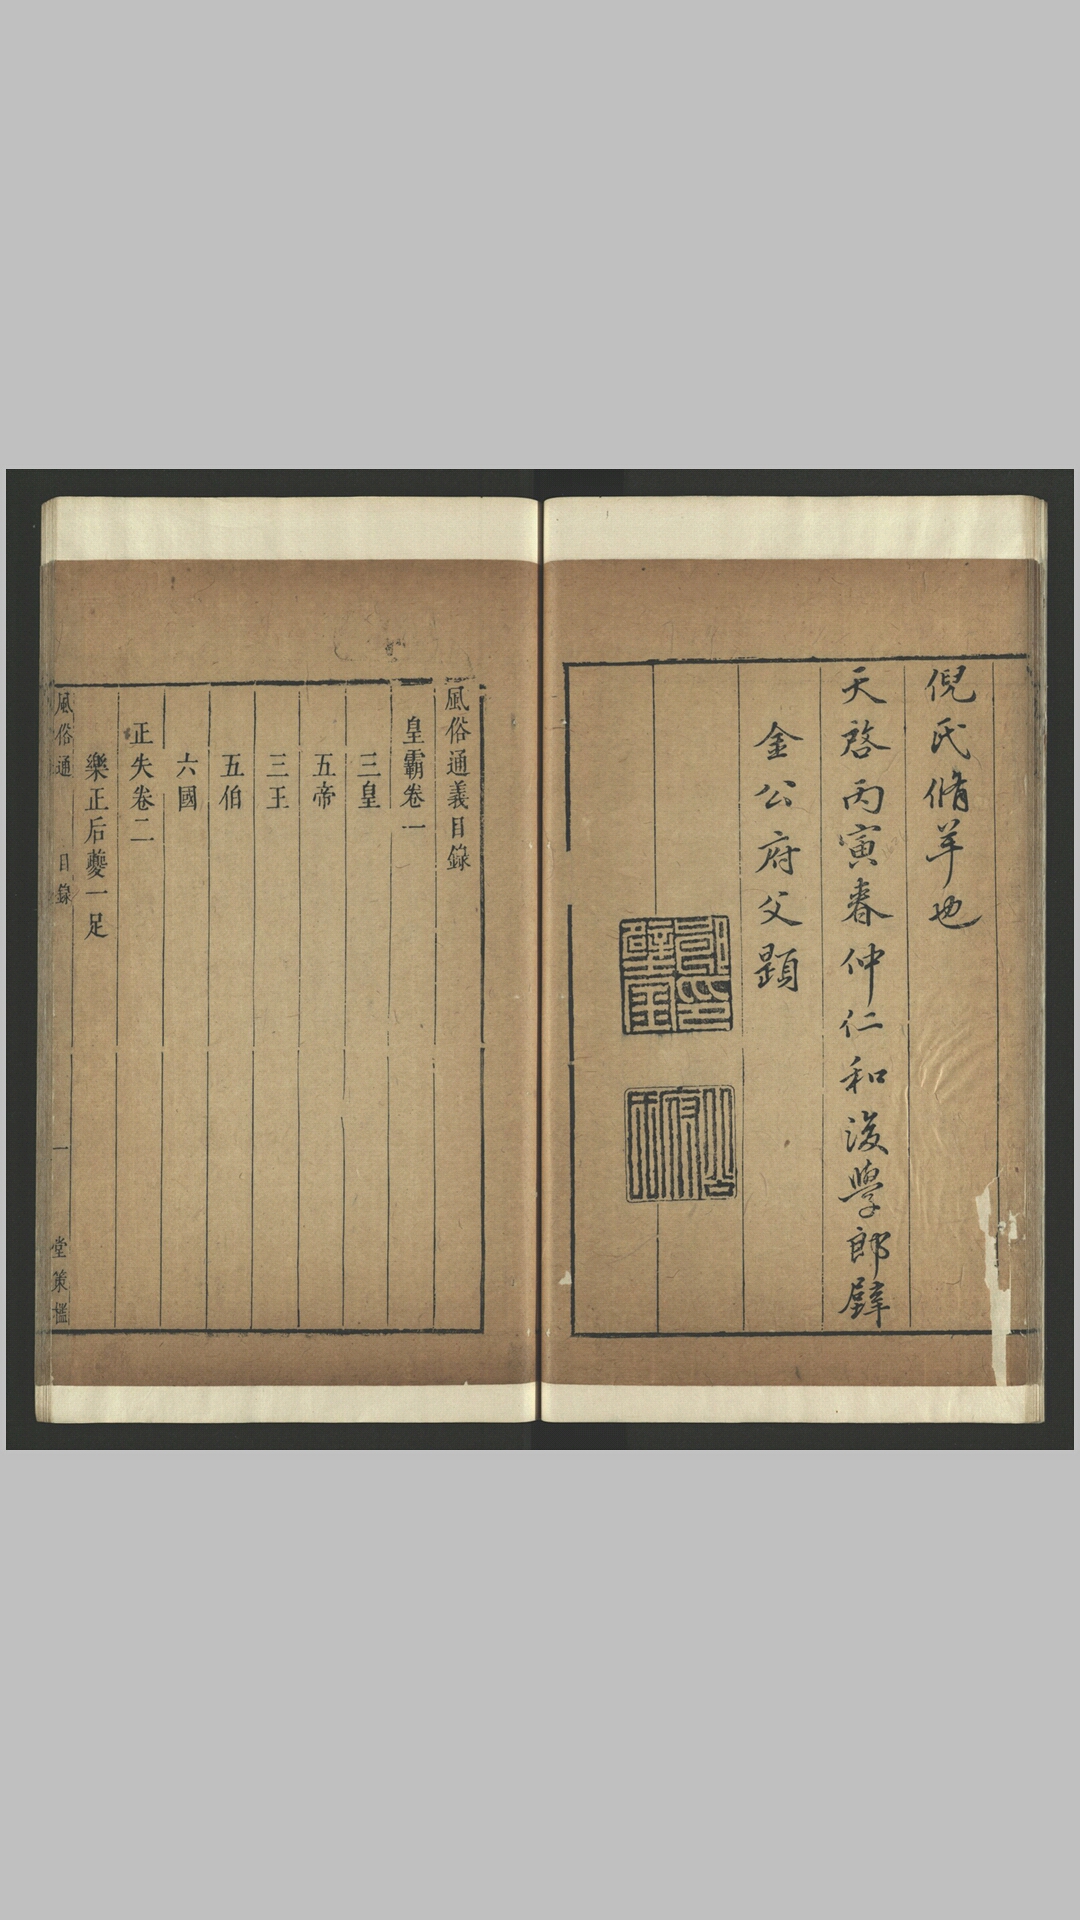 倪氏脩羊也
天啓丙寅春仲仁和後學郎壁
金公府父題
郎壁金印
公府父
風俗通義目錄
皇霸卷一
三皇
五帝
三王
五伯
六國
正失卷二
樂正后夔一足
風俗通 目錄 一 堂策檻